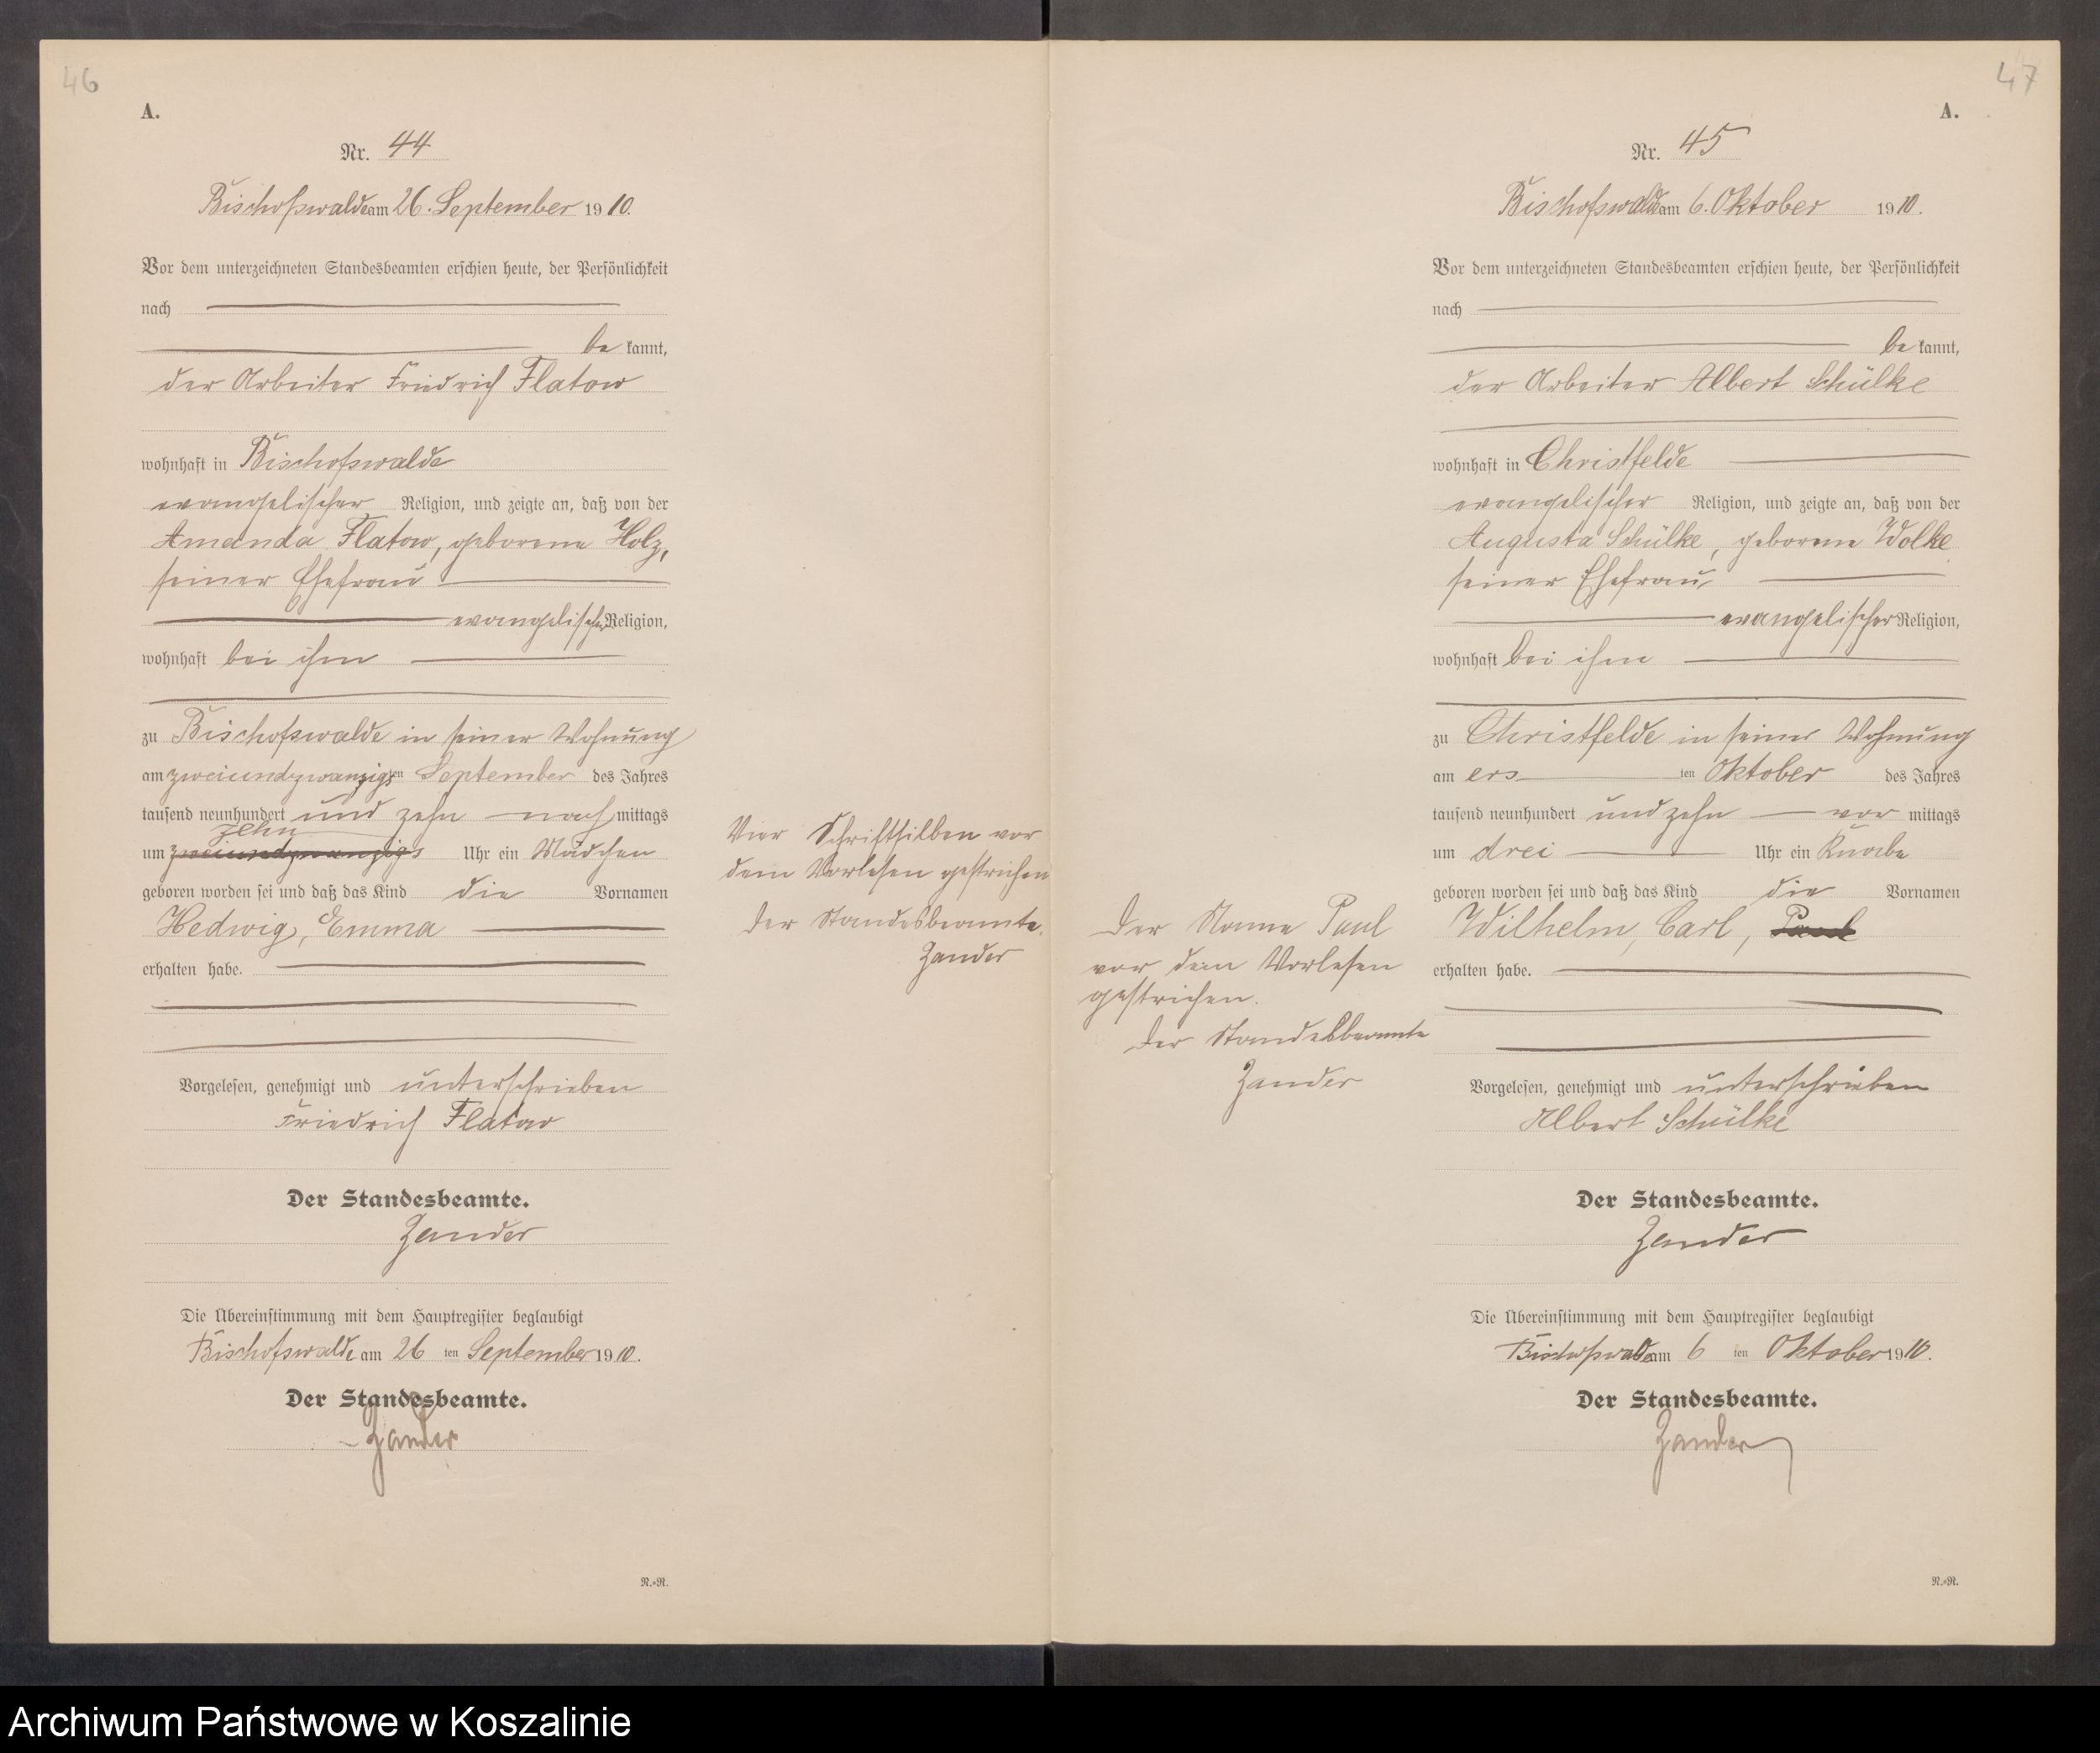 46
A.
Nr. 44
Bischofswalde am 26. September 1910.
Vor dem unterzeichneten Standesbeamten erschien heute, der Persönlichkeit
nach
be kannt,
der Arbeiter Friedrich Flatow
wohnhaft in Bischofswalde
evangelischer Religion, und zeigte an, daß von der
Amanda Flatow, geborene Holz,
seiner Ehefrau
evangelischer Religion,
wohnhaft bei ihm
zu Bischofswalde in seiner Wohnung
am zweiundzwanzigsten September des Jahres
tausend neunhundert und zehn nach mittags
zehn
um zweiundzwanzigs Uhr ein Mädchen
geboren worden sei und daß das Kind die Vornamen
Hedwig, Emma
erhalten habe.
Vorgelesen, genehmigt und unterschrieben
Friedrich Flatow
Der Standesbeamte.
Zander
Die Übereinstimmung mit dem Hauptregister beglaubigt
Bischofswalde am 26 ten September 1910.
Der Standesbeamte.
Zander
R.-R.
Vier Schriftsilben vor
dem Vorlesen gestrichen
Der Standesbeamte.
Zander
47
A.
Nr. 45
Bischofswalde am 6. Oktober 1910.
Vor dem unterzeichneten Standesbeamten erschien heute, der Persönlichkeit
nach
be kannt,
der Arbeiter Albert Schülke
wohnhaft in Christfelde
evangelischer Religion, und zeigte an, daß von der
Augusta Schülke, geborene Wolke
seiner Ehefrau,
evangelischer Religion,
wohnhaft bei ihm
zu Christfelde in seiner Wohnung
am ers ten Oktober des Jahres
tausend neunhundert und zehn vor mittags
um drei Uhr ein Knabe
geboren worden sei und daß das Kind die Vornamen
Wilhelm, Carl, Paul
erhalten habe.
Der Name Paul
vor dem Vorlesen
gestrichen.
Der Standesbeamte
Zander
Vorgelesen, genehmigt und unterschrieben
Albert Schülke
Der Standesbeamte.
Zander
Die Übereinstimmung mit dem Hauptregister beglaubigt
Bischofswalde am 6 ten Oktober 1910.
Der Standesbeamte.
Zander
R.-R.
Archiwum Państwowe w Koszalinie